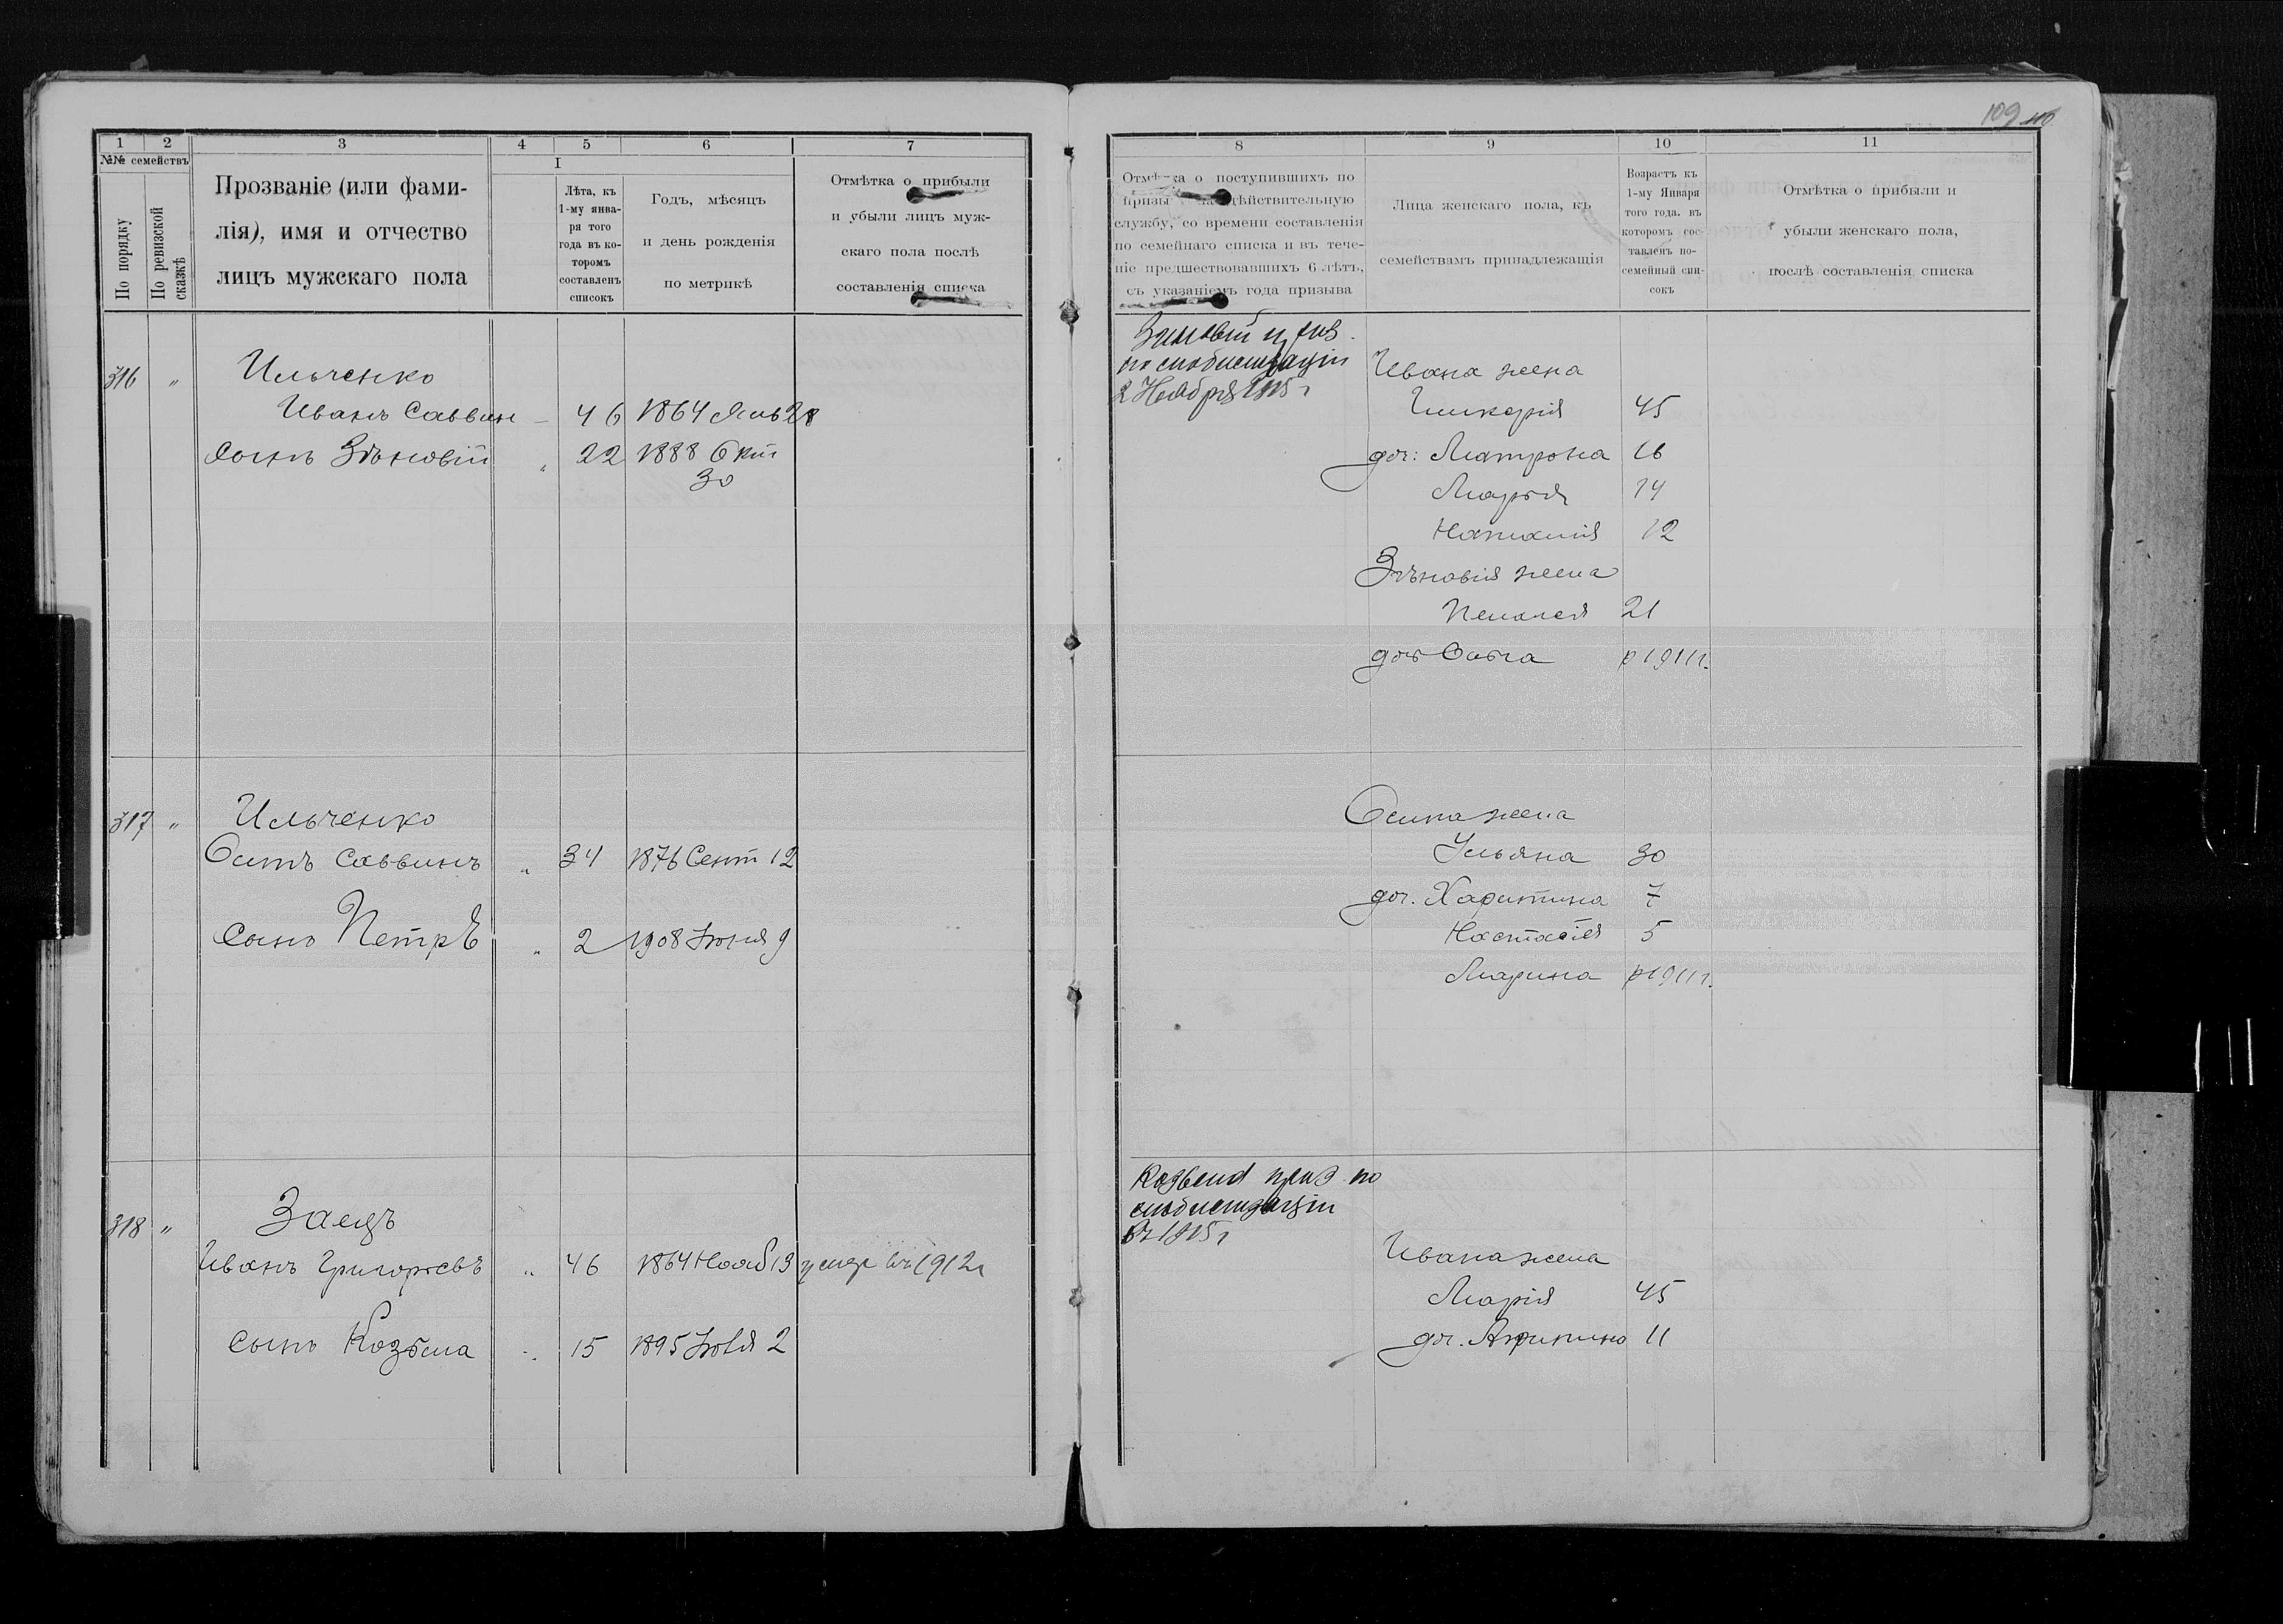 109
1 2 3 4 5 6 7
№№ семействъ
По порядку
По ревизской сказкѣ
Прозваніе (или фами-
лія), имя и отчество
лицъ мужскаго пола
I
Лѣта, къ
1-му янва-
ря того
года въ ко-
торомъ
составленъ
списокъ
Годъ, мѣсяцъ
и день рожденія
по метрикѣ
Отмѣтка о прибыли
и убыли лицъ муж-
скаго пола послѣ
составленія списка
8 9 10 11
Отмѣтка о поступившихъ по
призы на дѣйствительную
службу, со времени составленія
по семейнаго списка и въ тече-
ніе предшествовавшихъ 6 лѣтъ,
съ указаніемъ года призыва
Лица женскаго пола, къ
семействамъ принадлежащія
Возрастъ къ
1-му Января
того года. въ
которомъ сос-
тавленъ по-
семейный спи-
сокъ
Отмѣтка о прибыли и
убыли женскаго пола,
послѣ составленія списка
316 " Ильченко
Иванъ Саввин - 46 1864 Янв 28
сынъ Зѣновій " 22 1888 Окт
30
Зиновій приз.
по мобилизаціи
2 Ноября 1915 г
Ивана жена
45
доч: Матрона 16
Марья 14
Наталія 12
Зѣновія жена
Пелагея 21
доч Ольга р 1911 г.
317 " Ильченко
Осипъ Саввинъ " 34 1876 Сент 12
сынъ Петръ " 2 1908 Іюня 9
Осипа жена
Ульяна 30
доч. Харитина 7
Настасія 5
Марина р 1911 г.
318 " Заецъ
Иванъ Григорьевъ " 46 1864 Нояб 13 умер въ 1912 г
сынъ Козьма " 15 1895 Іюля 2
Козьма приз по
мобилизаціи
въ 1915 г
Ивана жена
Марія 45
доч. 11